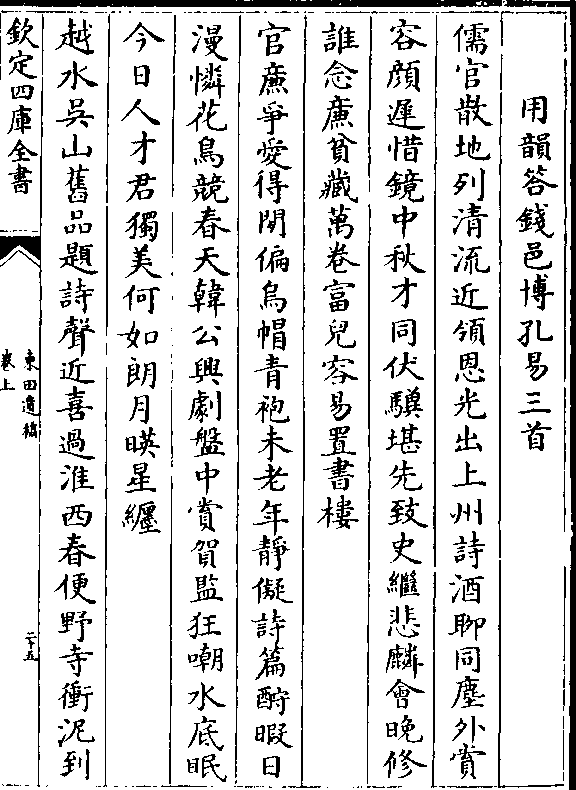 用韻答錢邑博孔易三首
儒官散地列清流近領恩光出上州詩酒聊同塵外賞
容顔遲惜鏡中秋才同伏驥堪先致史繼悲麟會晚修
誰念廉貧藏萬卷富兒容易置書樓
官廉爭愛得閒偏烏帽青袍未老年靜儗詩篇酹暇日
漫憐花鳥競春天韓公興劇盤中賞賀監狂嘲水底眠
今日人才君獨美何如朗月暎星纒
越水吳山舊品題詩聲近喜過淮西春便野寺衝泥到
欽定四庫全書
東田遺稿
卷上
二十五